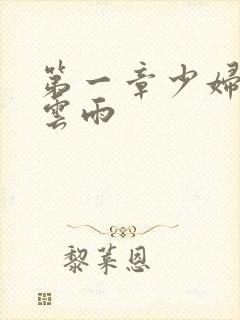 第一章少婦
雲雨
黎萊恩